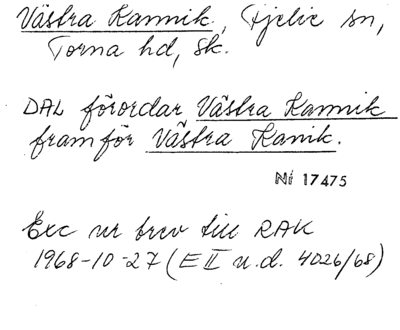 Västra Kannik, Fjelie sn,
Torna hd, Sk.
DAL förordar Västra Kannik
framför Västra Kanik.
Ni 17475
Exc ur brev till RAK
1968-10-27 (E II u.d. 4026/68)